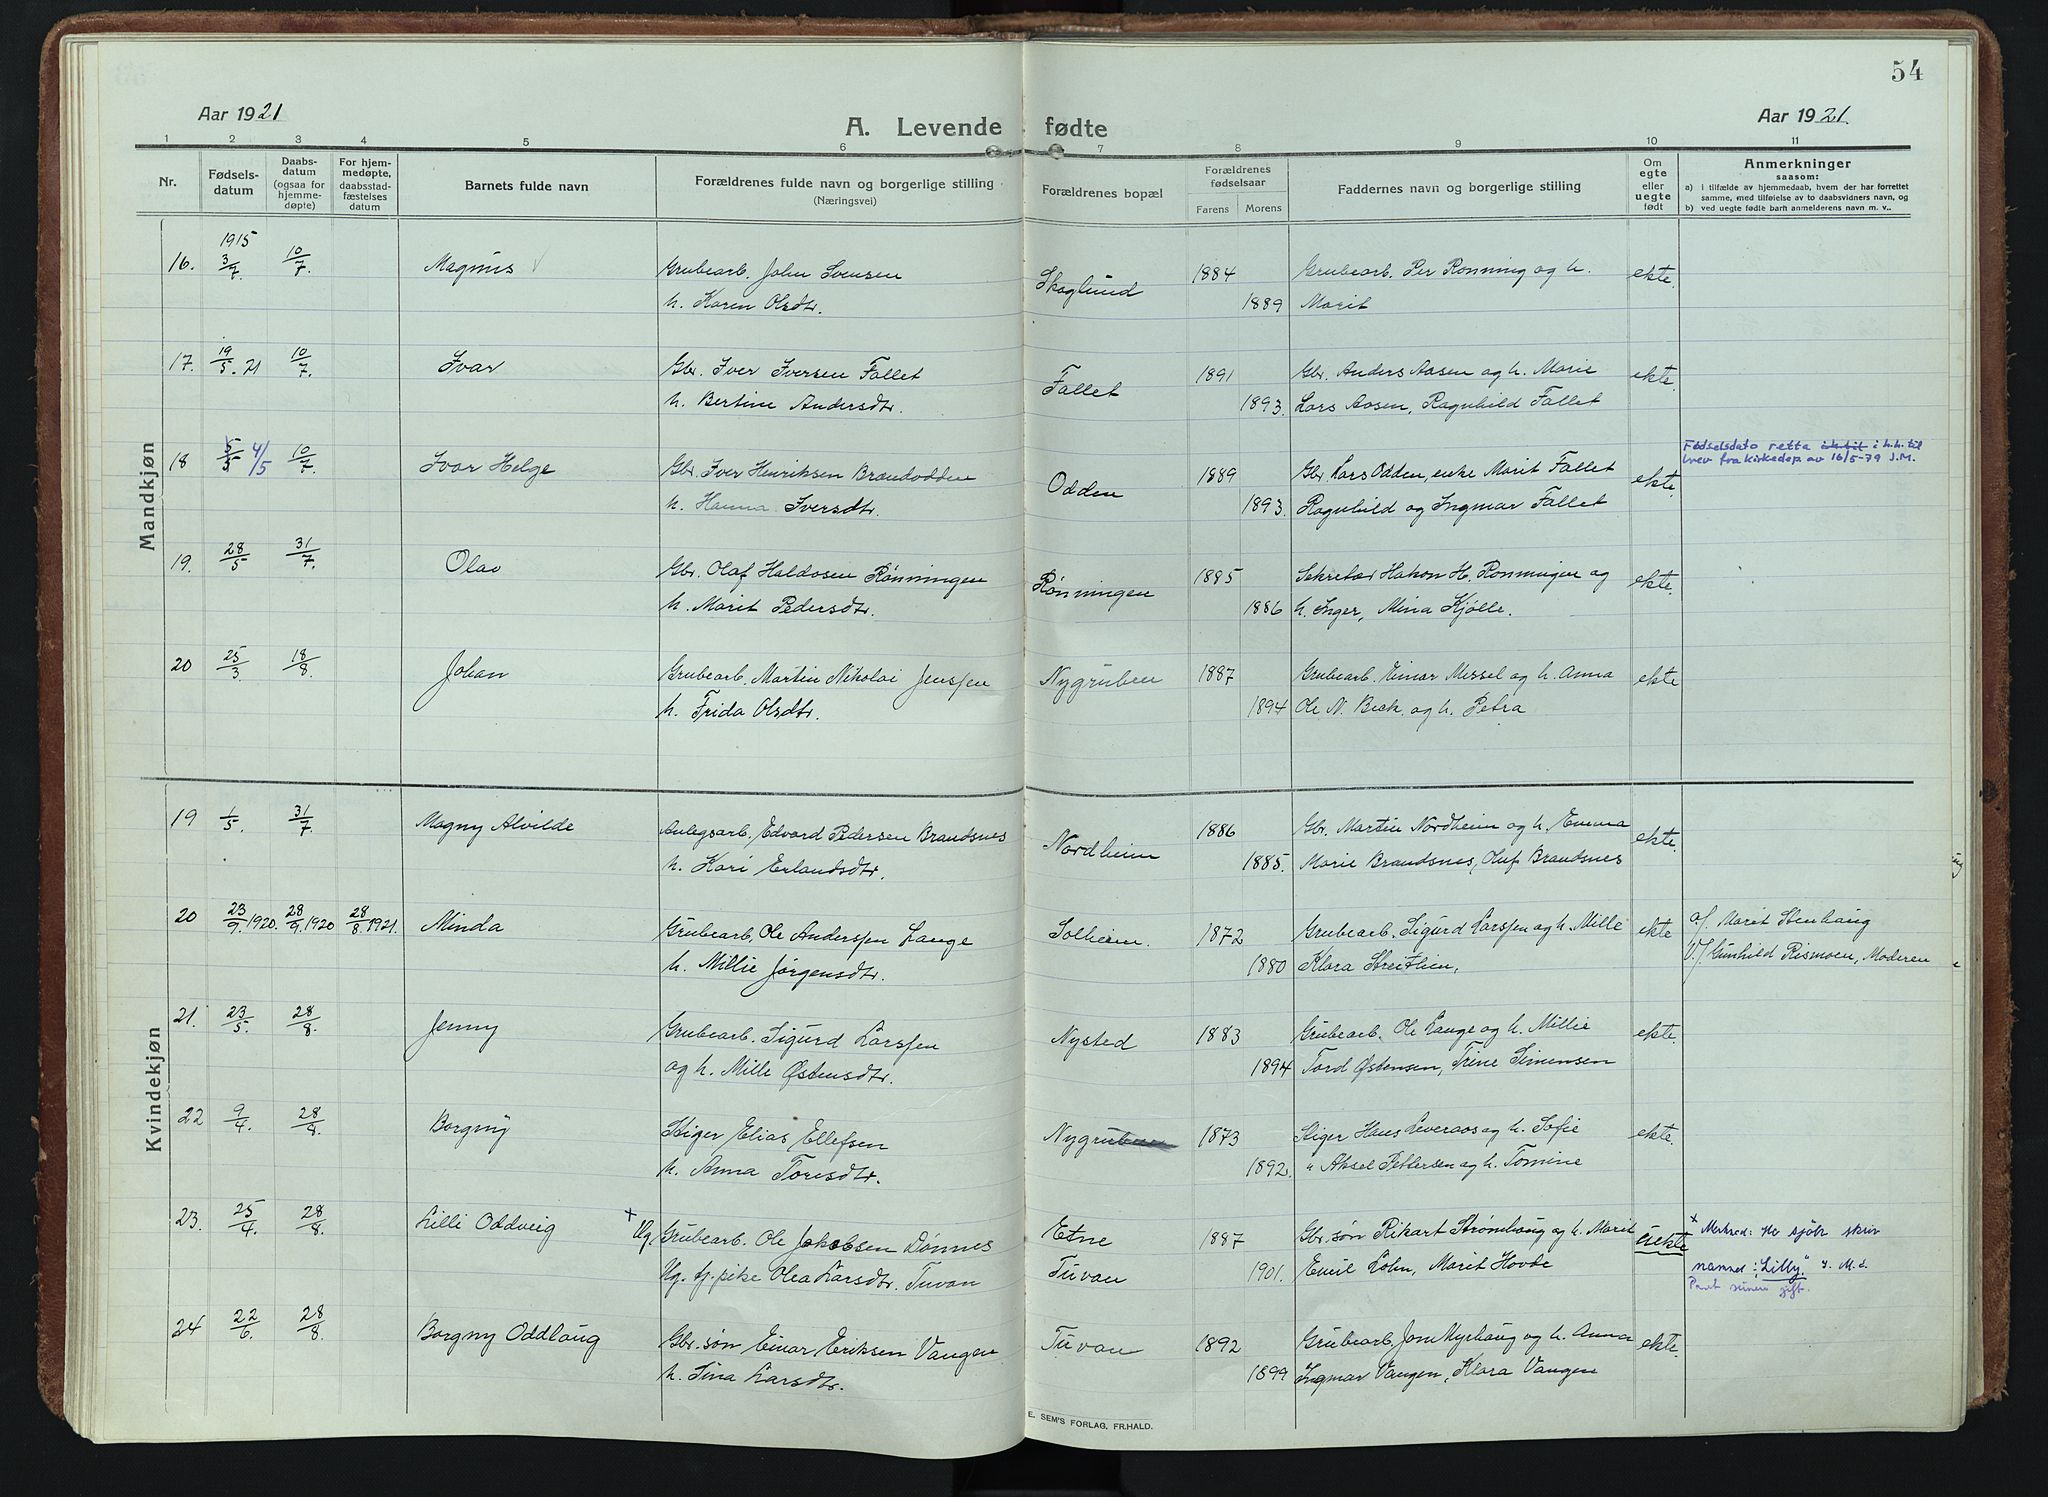 54
Aar 1921
A. Levende fødte
Aar 1921.
1 2 3 4 5 6 7 8 9 10 11
Nr. Fødselsdatum Daabsdatum (ogsaa for hjemmedøpte) For hjemmedøpte, daabsstadfæstelses datum Barnets fulde navn Forældrenes fulde navn og borgerlige stilling (Næringsvei) Forældrenes bopæl Forældrenes fødselsaar Farens Morens Faddernes navn og borgerlige stilling Om egte eller uegte født Anmerkninger saasom:
a) i tilfælde av hjemmedaab, hvem der har forrettet samme, med tilføielse av to daabsvidners navn, og
b) ved uegte fødte barn anmelderens navn m. v..
Mandkjøn
16. 1915 3/7 10/7. Magnus Grubearb. John Svensen Skoglund 1884 Grubearb. Per Rønning og h. ekte.
h. Karen Olsdtr. 1889 Marit
17. 19/5. 21 10/7. Ivar Gbr. Iver Iversen Fallet Fallet 1891 Gbr. Anders Aasen og h. Marie ekte.
h. Bertine Andersdtr. 1893. Lars Aasen, Ragnhild Fallet
18 5/5 4/5 10/7 Ivar Helge Gbr. Iver Henriksen Brandvodden Odden 1889 Gbr. Lars Odden, enke Marit Fallet ekte. Fødselsdato retta i h.h. til
h. Hanna Iversdtr. 1893. Ragnhild og Ingmar Fallet brev fra Kirkedep. av 16/5-79 J.M.
19. 28/5 31/7. Olav Gbr. Olaf Haldosen Rønningen Rønningen 1895 Sekretær Hakon H. Rønningen og ekte.
h. Marit Pedersdtr. 1886 h. Inger, Mina Kjølle.
20 25/3 18/8. Johan Grubearb. Martin Nikolai Jenssen Nygruben 1887 Grubearb. Einar Messel og h. Anna ekte
h. Frida Olsdtr. 1894 Ole N. Beck og h. Petra
Kvindekjøn
19 1/5. 31/7 Magny Alvilde Anlegsarb. Edvard Pedersen Brandsnes Nordheim 1886 Gbr. Martin Nordheim og h. Emma ekte.
h. Kari Erlandsdtr. 1885. Marie Brandsnes, Oluf Brandsnes
20 23/9 1920. 28/9 1920 28/8 1921. Minda Grubearb. Ole Anderssen Lange Solheim. 1872 Grubearb. Sigurd Larssen og h. Mille ekte a/ Marit Stenhaug
h. Millie Jørgensdtr. 1880 Klara Streitlien, V/ Gunhild Rismoen, Moderen
21. 23/5. 28/8. Jenny Grubearb. Sigurd Larssen Nysted 1883 Grubearb. Ole Lange og h. Millie ekte.
og h. Mille Østensdtr. 1894 Tord Østensen, Trine Simensen
22 9/4. 28/8. Borgny Stiger Elias Ellefsen Nygruben 1873 Stiger Hans Leveraas og h. Sofie ekte.
h. Anna Toresdtr. 1892. " Aksel Pettersen og h. Tomine
23. 25/4. 28/8. Lilli Oddveig + Ug. Grubearb. Ole Jakobsen Dønnes Etne 1887 Gbr. søn Rikart Strømhaug og h. Marit uekte + Merknad: Ho sjølv skriv
Ug. tj. pike Olea Larsdtr. Tuvan Tuvan 1901. Emil Lohn, Marit Hovde namnet: "Lilly"
24 22/6. 28/8. Borgny Oddlaug Gbr. søn Einar Eriksen Vangen Tuvan 1892 Grubearb. Jon Myrhaug og h. Anna ekte.
h. Sina Larsdtr. 1899 Ingmar Vangen, Klara Vangen
E. SEM'S FORLAG, FR.HALD.